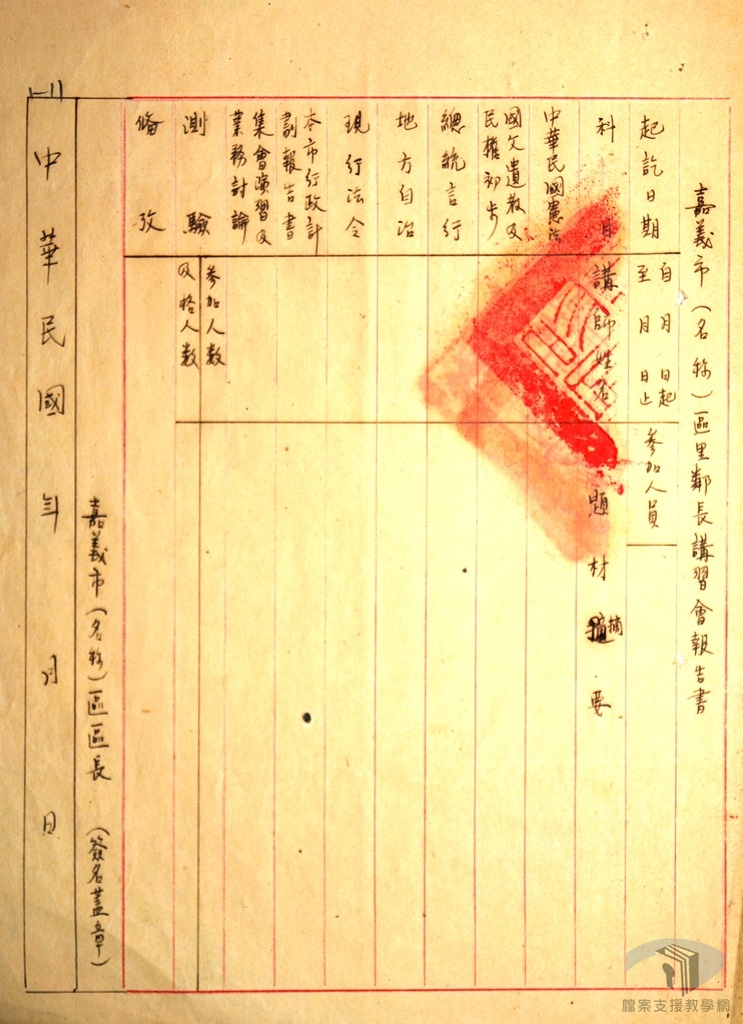 嘉義市（名称）區里鄰長講習會報告書
起訖日期
自 月 日起
至 月 日止
參加人員
科目
講師姓名
題材摘要
摘
中華民國憲法
國父遺教及
民權初步
總統言行
地方自治
現行法令
本市行政計
劃報告書
集會演習及
業務討論
測驗
參加人數
及格人數
備攷
嘉義市（名称）區區長 （簽名蓋章）
中華民國 年 月 日
1-11
檔案支援教學網